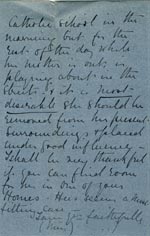 Catholic School in the
morning but for the
rest of the day while
his mother is out, is
playing about in the
streets, & it is most
desirable he should be
removed from his present
Surroundings & placed
under good influence.
I shall be very thankful
if you can find room
for him in one of your
Homes. He is seeing a most
fitting case.
I am yrs faithfully